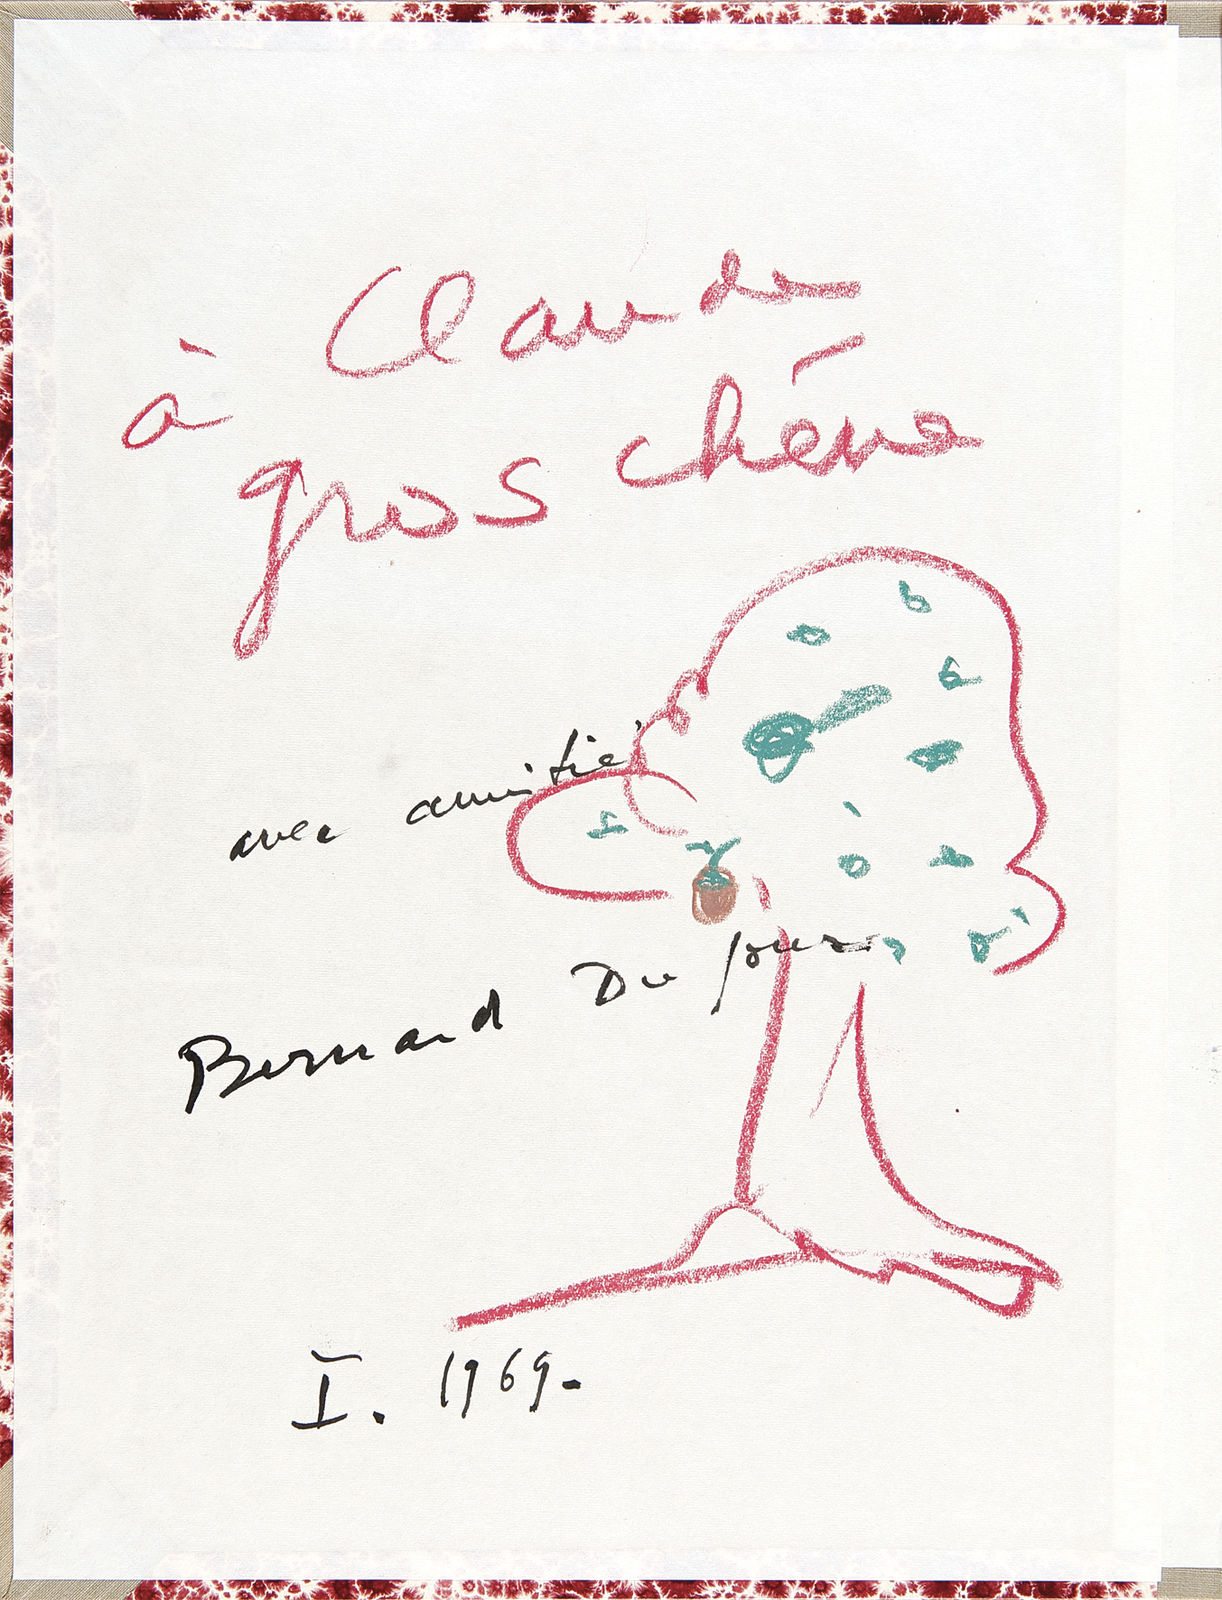 à Claude
gros chêne
avec amitié
Bernard Dufour
I. 1969-